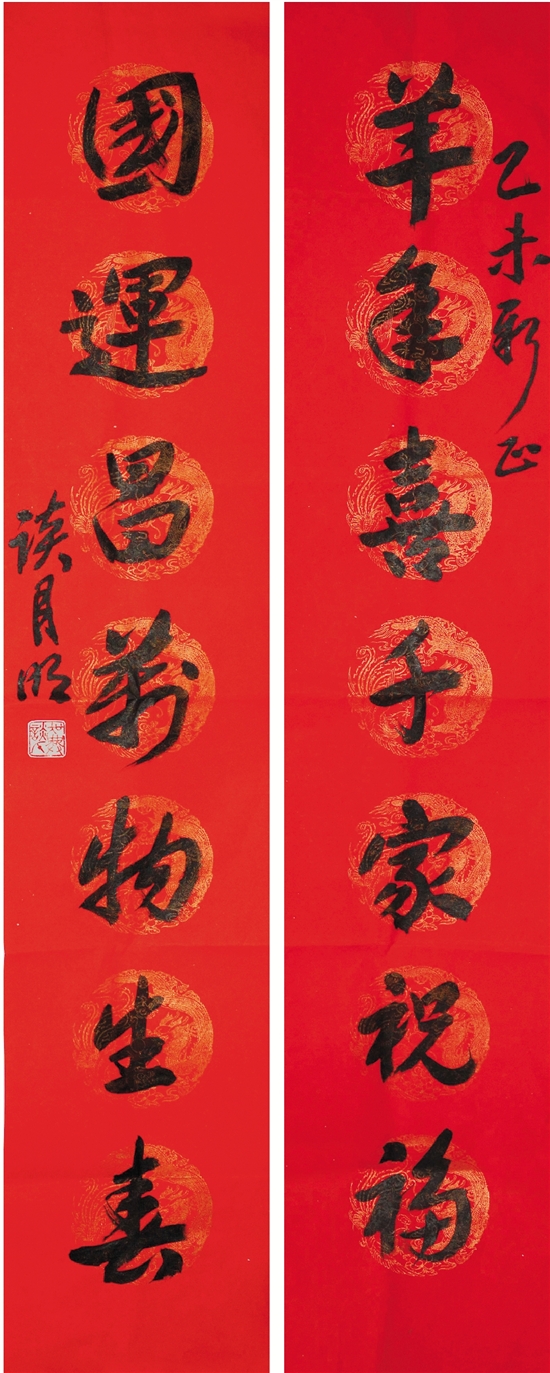 乙未新正
羊年喜千家祝福
國運昌萬物生春
談月明